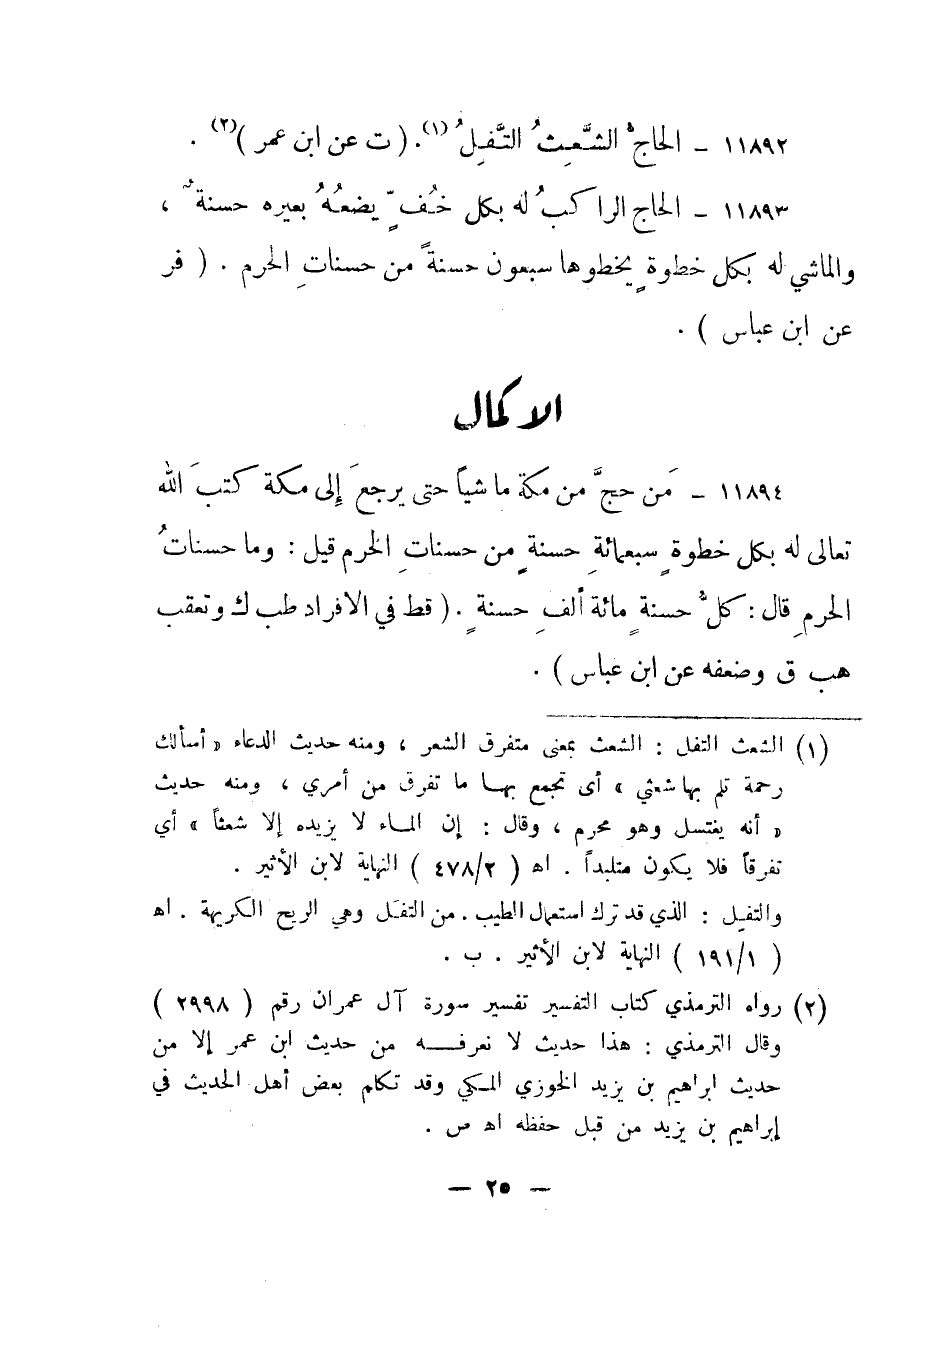 ١١٨٩٢ – الحاجُّ الشَّعِثُ التَّفِلُ(١). ( ت عن ابن عمر )(٢) .
١١٨٩٣ – الحاج الراكبُ له بكل خُفٍّ يضعُهُ بعيره حسنةٌ ،
والماشي له بكل خطوةٍ يخطوها سبعون حسنةً من حسناتِ الحرم . ( فر
عن ابن عباس ) .
الاكمال
١١٨٩٤ – مَن حجَّ من مكة ماشياً حتى يرجعَ إلى مكة كتبَ الله
تعالى له بكل خطوةٍ سبعمائةِ حسنةٍ من حسناتِ الحرم قيل : وما حسناتُ
الحرمِ قال : كلُّ حسنةٍ مائة ألفِ حسنةٍ . ( قط في الافراد طب ك وتعقب
هب ق وضعفه عن ابن عباس ) .
(١) الشعث التفل : الشعث بمعنى متفرق الشعر ، ومنه حديث الدعاء « أسألك
رحمة تلم بها شعثي » أى تجمع بها ما تفرق من أمري ، ومنه حديث
« أنه يغتسل وهو محرم ، وقال : إن الماء لا يزيده إلا شعثاً » أي
تفرقاً فلا يكون متلبداً . اه ( ٤٧٨/٢ ) النهاية لابن الأثير .
والتفيل : الذي قد ترك استعمال الطيب . من التفَل وهي الريح الكريهة . اه
( ١٩١/١ ) النهاية لابن الأثير . ب .
(٢) رواه الترمذي كتاب التفسير تفسير سورة آل عمران رقم ( ٢٩٩٨ )
وقال الترمذي : هذا حديث لا نعرفه من حديث ابن عمر إلا من
حديث ابراهيم بن يزيد الخوزي المكي وقد تكلم بعض أهل الحديث في
إبراهيم بن يزيد من قبل حفظه اه ص .
– ٢٥ –